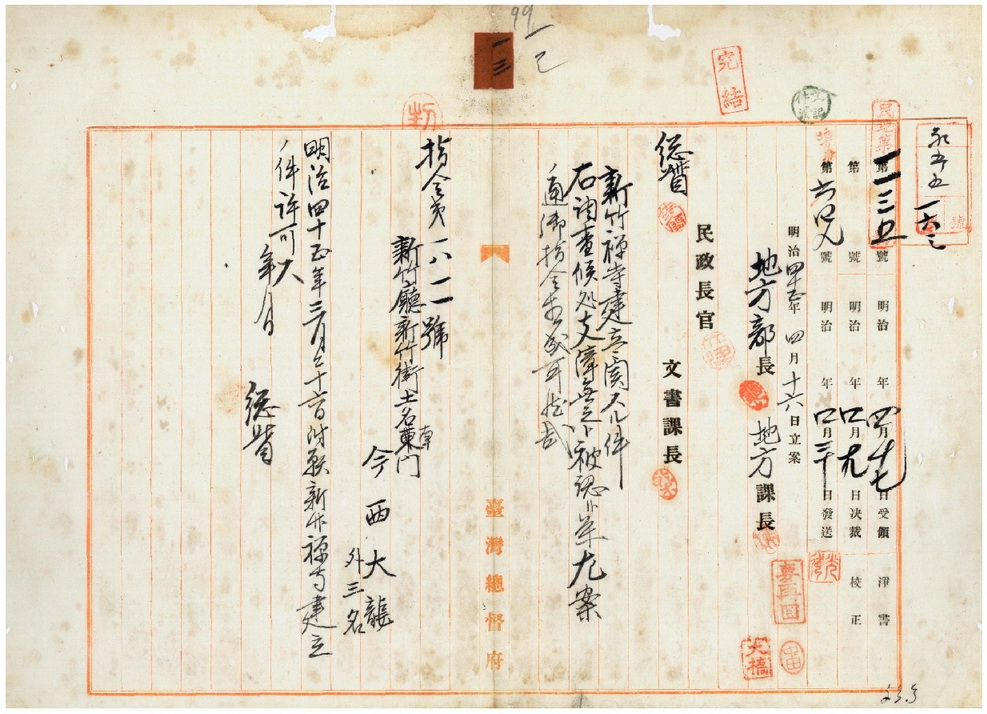 完結
永年
第一一三五號 明治 年四月十七日受領 淨書
第 號 明治 年四月十九日決裁 校正
第六四八號 明治 年四月二十日發送
明治四十五年四月十六日立案
地方部長 地方課長
民政長官 文書課長
總督
新竹禪寺建立ニ関スル件
右調査候処支障無之ト被認ニ付左案
ノ通御指令相成可然哉
指令第一八一二號
新竹廳新竹街土名東門
今西大龍
外三名
明治四十五年三月二十六日附願新竹禪寺建立
ノ件許可ス
年 月
總督
臺灣總督府